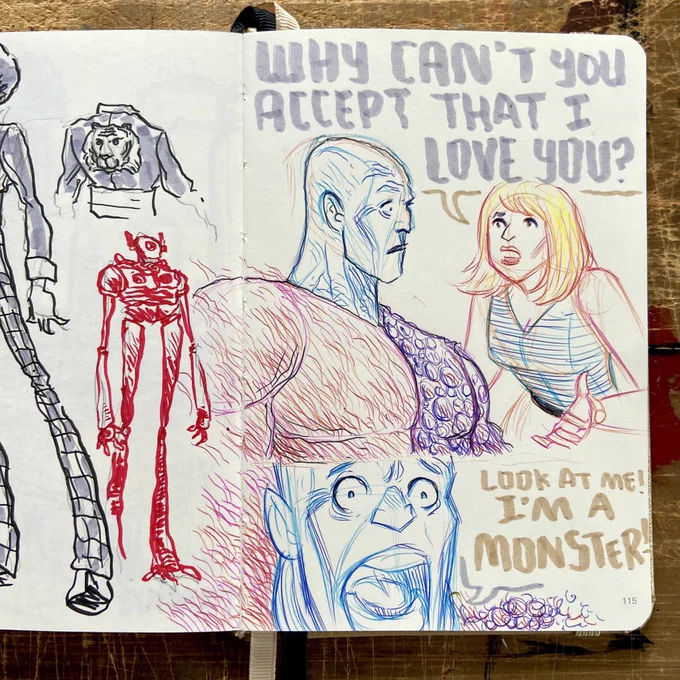 WHY CAN'T YOU
ACCEPT THAT I
LOVE YOU?
LOOK AT ME!
I'M A
MONSTER!
115